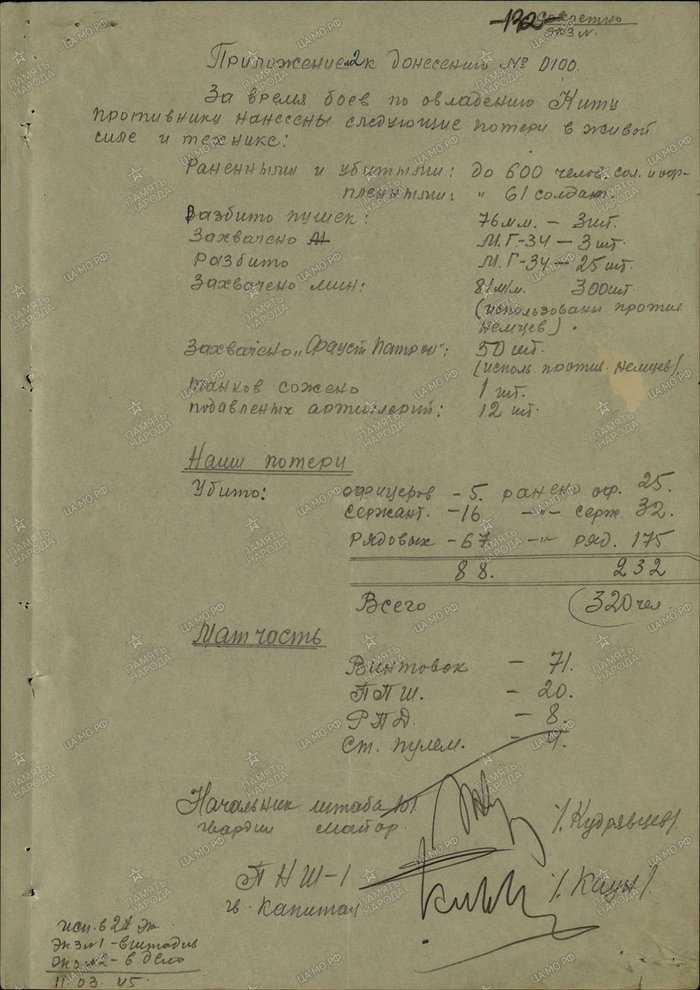 Секретно
экз №
Приложение 2 к донесению № 0100.
За время боев по овладению Нити
противнику нанесены следующие потери в живой
силе и технике:
Раненными и убитыми: до 600 челов. сол. и оф-
пленными: " 61 солдат.
Разбито пушек: 76 мм. – 3 шт.
Захвачено М.Г-34 – 3 шт.
Разбито М.Г-34 – 25 шт.
Захвачено мин: 81 м/м. 300 шт.
(использованы против
немцев).
Захвачено „Фауст Патрон": 50 шт.
(исполь против немцев)
танков сожено 1 шт.
подавленых артиллерий: 12 шт.
Наши потери
Убито: офицеров – 5. ранено оф. 25.
сержант. – 16. –"– серж. 32.
Рядовых – 67. –"– ряд. 175
88. 232
Всего 320 чел.
Мат часть
Винтовок – 71.
ППШ. – 20.
РПД. – 8.
Ст. пулем. – 4.
Начальник штаба
гвардии майор /Кудрявцев/
ПНШ-1
гв. капитан /Каун/.
исп. в 2х эк
экз №1 – в штадив
экз №2 – в дело
11.03.45
ПАМЯТЬ НАРОДА
ЦАМО.РФ